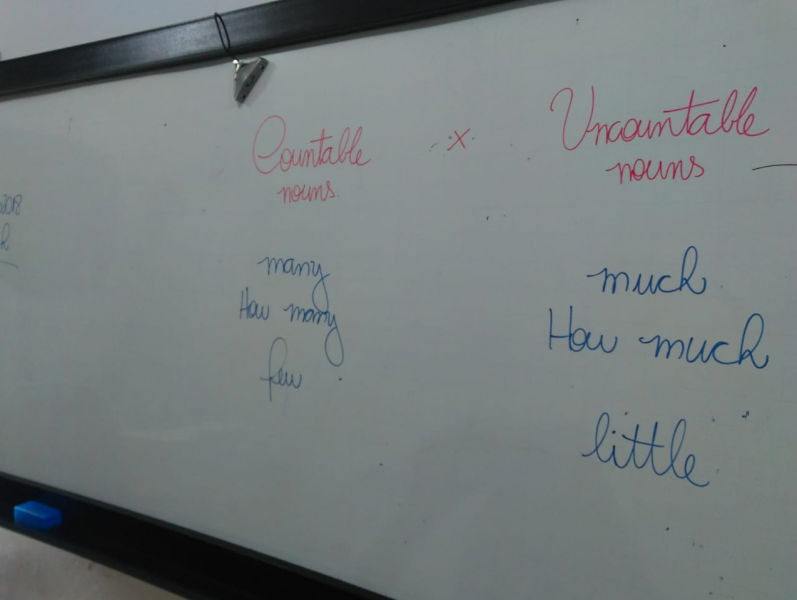 Countable x Uncountable
nouns nouns
many much
How many How much
few little